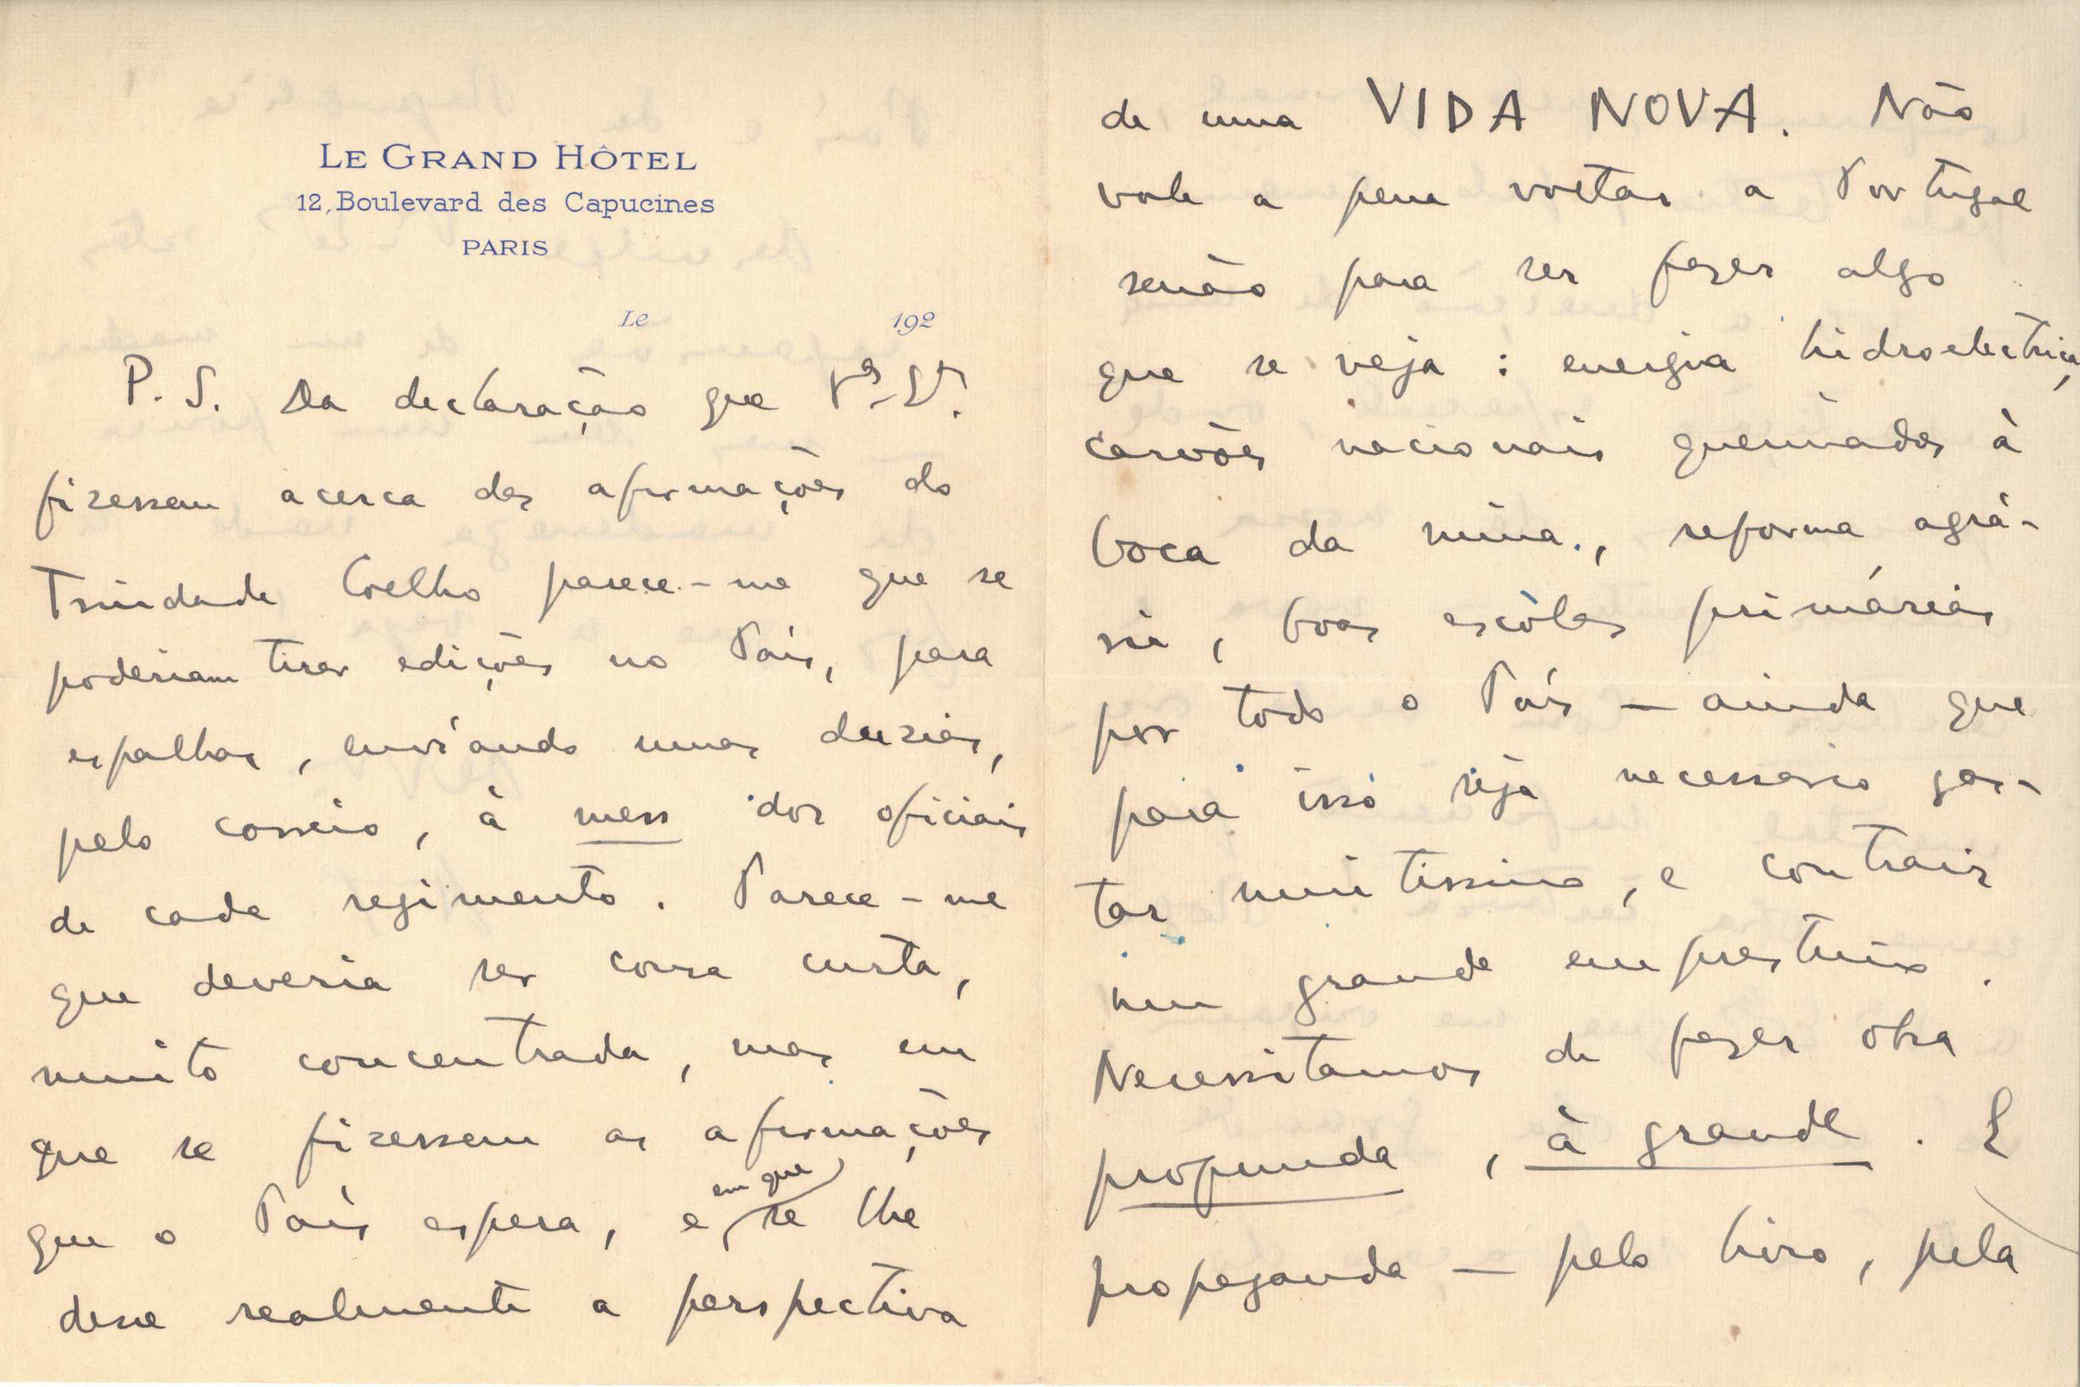 LE GRAND HÔTEL
12, Boulevard des Capucines
PARIS
Le 192
P. S. Da declaração que Vas. Sas.
fizessem acerca das afirmações do
Trindade Coelho parece-me que se
poderiam tirar edições no País, para
espalhar, enviando umas duzias,
pelo correio, à mess dos oficiais
de cada regimento. Parece-me
que deveria ser cousa curta,
muito concentrada, mas em
que se fizessem as afirmações
que o País espera, e em que se lhe
desse realmente a perspectiva
de uma VIDA NOVA. Não
vale a pena voltar a Portugal
senão para se fazer algo
que se veja: energia hidroelectrica,
carvões nacionais queimados à
boca da mina, reforma agrá-
ria, boas escólas primárias
por todo o País — ainda que
para isso seja necessario gas-
tar muitissimo, e contrair
um grande emprestimo.
Necessitamos de fazer obra
profunda, à grande. E
propaganda — pelo livro, pela